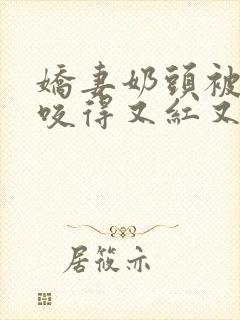 嬌妻奶頭被
咬得又紅又
居筱亦